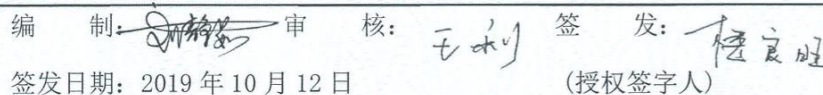 编 制: 审 核: 王 签 发:
签发日期: 2019 年 10 月 12 日 (授权签字人)